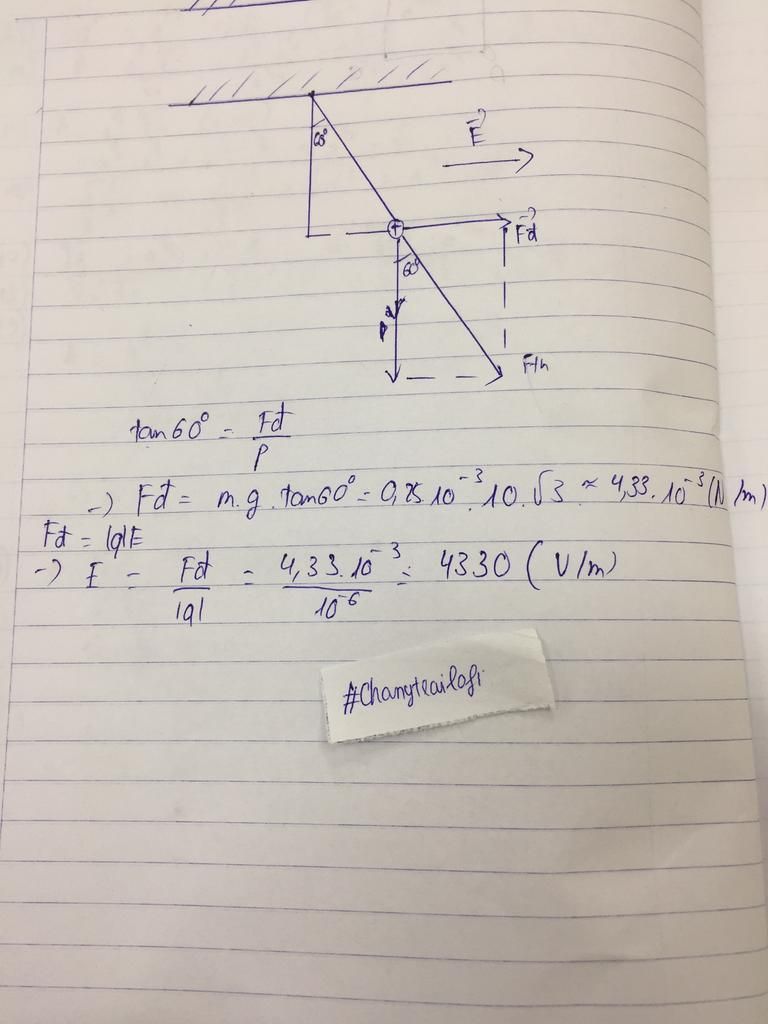 60°
E
Fđ
60°
P
Fth
tan60° = Fđ/P
-) Fđ = m.g.tan60° = 0,25.10⁻³.10.√3 ≈ 4,33.10⁻³ (N/m)
Fđ = |q|E
-) E = Fđ/|q| = 4,33.10⁻³/10⁻⁶ = 4330 (V/m)
#Chanyeailofi